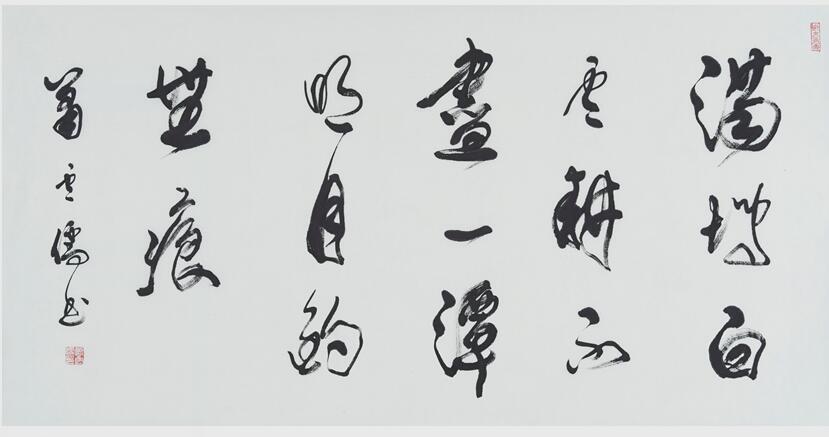 满塢白
雲耕不
盡一潭
明月釣
無痕
蕭雲儒书